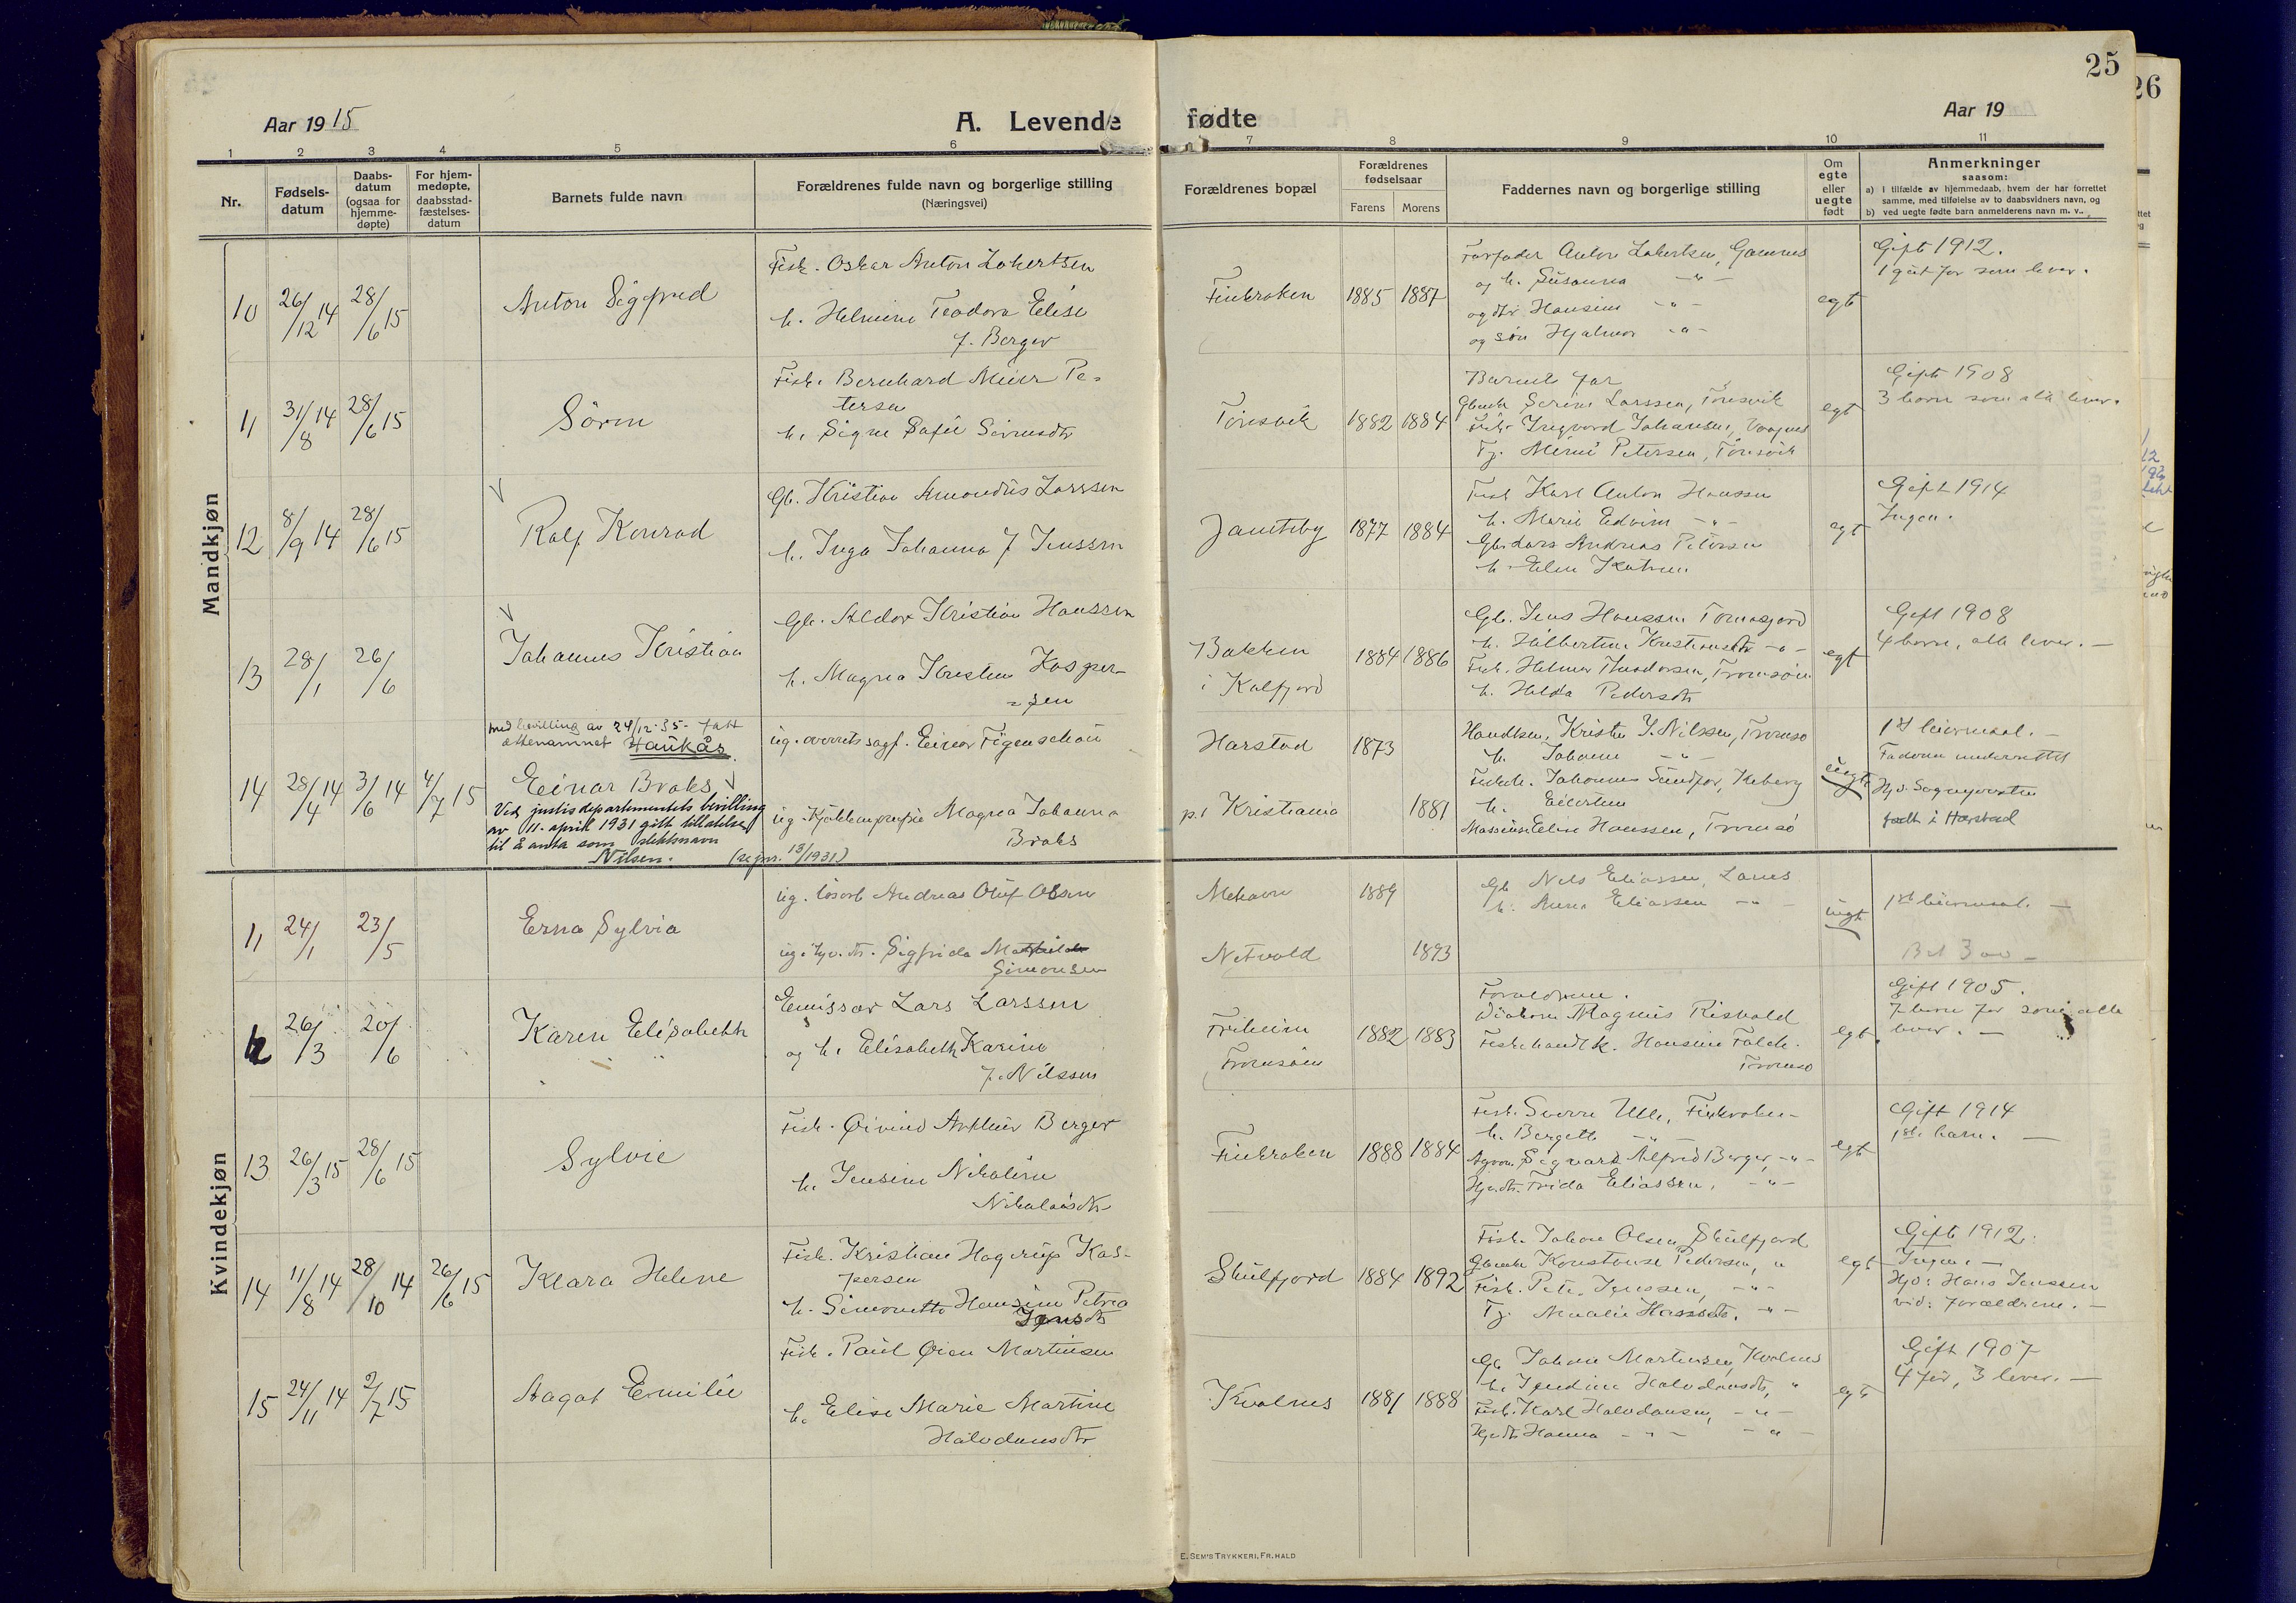 25
26
Aar 1915
A. Levende fødte
Aar 19
1 2 3 4 5 6 7 8 9 10 11
Nr.
Fødsels-
datum
Daabs-
datum
(ogsaa for
hjemme-
døpte)
For hjem-
medøpte,
daabsstad-
fæstelses-
datum
Barnets fulde navn
Forældrenes fulde navn og borgerlige stilling
(Næringsvei)
Forældrenes bopæl
Forældrenes
fødselsaar
Farens
Morens
Faddernes navn og borgerlige stilling
Om
egte
eller
uegte
født
Anmerkninger
saasom:
a) i tilfælde av hjemmedaab, hvem der har forrettet
samme, med tilføielse av to daabsvidners navn, og
b) ved uegte fødte barn anmelderens navn m. v..
Mandkjøn
10
26/12 14
28/6 15
Anton Sigfred
Fisk. Oskar Anton
h. Helmine Teodora Elise
f. Berger
Finkroken
1885 1887
Farfader Anton Gamnes
og h. Susanna -"-
og dtr Hansine -"-
og søn Hjalmar -"-
egt
Gift 1912.
1 gut før som lever.
11
31/8 14
28/6 15
Sören
Fisk. Bernhard Meier Pe-
tersen
h. Signe Sofie Sörensdtr
Tönsvik
1882 1884
Barnets far
Larssen, Tönsvik
Fisk. Ingvard Johansen, Vaagnes
Tj. Petersen, Tönsvik
egt
Gift 1908
3 barn som alle lever.
12
8/9 14
28/6 15
V
Ralf Konrad
Gb. Kristian Amandus Larssen
h. Inga Johanna f Jenssen
Jamteby
1877 1884
Fisk Karl Anton Hanssen
h. Marie Edvine -"-
Gb. Lars Andreas Petersen
h. Elen Katrine
egt
Gift 1914
Ingen.
13
28/1
26/6
V
Johannes Kristian
Gb. Aldor Kristian Hanssen
h. Magna Kristine Kasper-
=sen
Bakken
i Kalfjord
1884 1886
Gb. Jens Hanssen
h. Hilbertine Kristiansdtr -"-
Fisk. Helmer Theodorsen, Tromsöen
h. Hilda Pedersdtr
egt
Gift 1908
4 barn, alle lever. —
med bevilling av 24/12-35- tatt
ættenamnet Haukås
14
28/4 14
3/6 14
4/7 15
Einar Broks V
Ved justisdepartementets bevilling
av 11. april 1931 gitt tillatelse
til å anta som slektsnavn
Nilsen. (se jnr. 13/1931)
ug. overretssagf. Einar Figenschou
ug. Magna Johanna
Broks
Harstad
p.t Kristiania
1873
1881
Handlsm. Kristen J. Nilssen, Tromsö
h. Johanne -"-
Johannes Sundfær,
h. Eilertine
Elise Hanssen, Tromsö
uegte
1st leiermaal. —
Faderen underrettet
Hjd. Sogneprosten
født i Harstad
Kvindekjøn
11
24/1
23/5
Erna Sylvia
ug. Andreas Oluf Olsen
ug. Sigfrida Mathilde
Simonsen
Mehavn
1889
1893
Gb Nils Eliassen, Lanes
h. Anna Eliassen -"-
uegt
1st leiermaal. —
12
26/3
20/6
Karen Elisabeth
Emissær Lars Larssen
og h. Elisabeth Karine
f. Nilssen
Friheim
Tromsöen
1882 1883
Forældrene.
Diakon Magnus Risvold
Hansine Falck.
Tromsö
egt.
Gift 1905.
7 barn før som alle
lever. —
13
26/3 15
28/6 15
Sylvie
Fisk. Øivind Arthur Berger
h. Jensine Nikoline
Nikolaisdtr
Finkroken
1888 1884
Fisk. Sverre Ulle, Finkroken
h. Bergette -"-
Sigvart Alfred Berger, -"-
Frida Eliassen, -"-
egt
Gift 1914
1ste barn. —
14
11/8 14
28/10 14
26/6 15
Klara Helene
Fisk. Kristian Hagerup Kas-
persen
h. Simonette Hansine Petrea
Jensdtr
Skulfjord
1884 1892
Fisk. Johan Olsen Skulfjord
Konstanse Pedersen, "
Fisk. Peter Jenssen, -"-
Tj. -"-
egt
Gift 1912.
Ingen. —
Hjd: Hans Jenssen
vid: forældrene. —
15
24/11 14
2/7 15
Aagot Emilie
Fisk. Paul Øien Martinsen
h. Elise Marie Martine
Halvdansdtr
Kvalnes
1881 1888
Gb Johan Martinsen, Kvalnes
h. Halvdansdtr, "
Fisk. Karl Halvdansen, -"-
Hanna -"- -"-
egt
Gift 1907
4 før, 3 lever. —
E. SEM'S TRYKKERI, FR. HALD